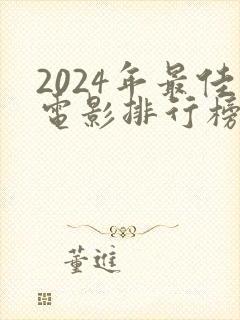 2024年最佳
电影排行榜
董進